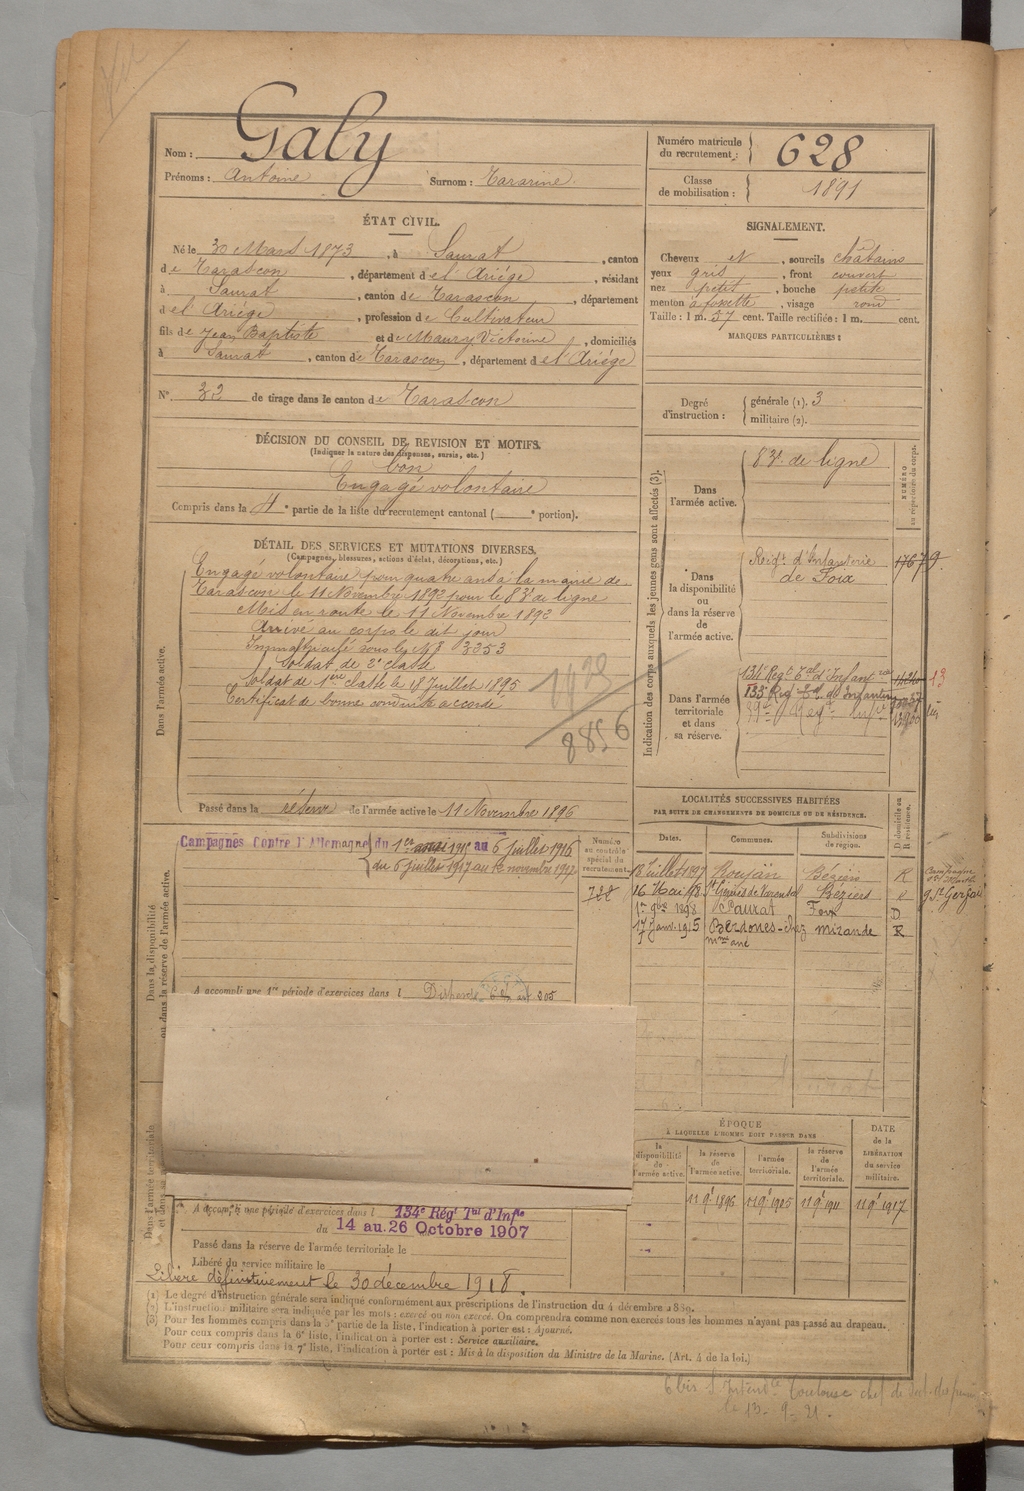 Galy
Nom :
Prénoms : Antoine Surnom : Tararine
Numéro matricule du recrutement : 628
Classe de mobilisation : 1891
ÉTAT CIVIL.
Né le 30 Mars 1873, à Saurat, canton
de Tarascon, département de l'Ariège, résidant
à Saurat, canton de Tarascon, département
de l'Ariège, profession de Cultivateur
fils de Jean Baptiste et de Maury Victorine, domiciliés
à Saurat, canton de Tarascon, département de l'Ariège
N° 32 de tirage dans le canton de Tarascon
SIGNALEMENT.
Cheveux et, sourcils châtains
yeux gris, front couvert
nez petit, bouche petite
menton à fossette, visage rond
Taille : 1 m. 57 cent. Taille rectifiée : 1 m. cent.
MARQUES PARTICULIÈRES :
Degré d'instruction : générale (1). 3
militaire (2).
DÉCISION DU CONSEIL DE REVISION ET MOTIFS.
(Indiquer la nature des dispenses, sursis, etc.)
bon
Engagé volontaire
Compris dans la 4e partie de la liste du recrutement cantonal ( e portion).
DÉTAIL DES SERVICES ET MUTATIONS DIVERSES.
(Campagnes, blessures, actions d'éclat, décorations, etc.)
Dans l'armée active.
Engagé volontaire pour quatre ans à la mairie de
Tarascon le 11 Novembre 1892 pour le 83e de ligne
Mis en route le 11 Novembre 1892
Arrivé au corps le dit jour
Immatriculé sous le N° 3353
Soldat de 2e classe
Soldat de 1ère classe le 18 Juillet 1895
Certificat de bonne conduite accordé
1423
8856
Passé dans la réserve de l'armée active le 11 Novembre 1896
Indication des corps auxquels les jeunes gens sont affectés (3).
NUMÉRO au répertoire du corps.
Dans l'armée active.
83e de ligne
Dans la disponibilité ou dans la réserve de l'armée active.
Régt d'Infanterie
de Foix
17679
Dans l'armée territoriale et dans sa réserve.
134e Régt Tal d'Infanterie
133 Reg Tal d'Infanterie
LOCALITÉS SUCCESSIVES HABITÉES
PAR SUITE DE CHANGEMENTS DE DOMICILE OU DE RÉSIDENCE.
Dates. Communes. Subdivisions de région. D domicile ou R résidence.
18 Juillet 1897 Roujan Béziers R
16 Mai 98 St Geniès de Varensal Béziers R
1er 9bre 1898 Saurat Foix D
17 Janv. 1915 Berdoues - chez Mirande R
Mme ané
Campagnes Contre l'Allemagne du 1er 1915 au 6 Juillet 1916
du 6 Juillet 1917 au novembre 1917
Numéro au contrôle spécial du recrutement.
728
Dans la disponibilité ou dans la réserve de l'armée active.
A accompli une 1re période d'exercices dans l Dispensé
Dans l'armée territoriale
A accompli une période d'exercices dans l 134e Régt Tal d'Infie
du 14 au 26 Octobre 1907
Passé dans la réserve de l'armée territoriale le
Libéré du service militaire le
Libéré définitivement le 30 décembre 1918.
ÉPOQUE
À LAQUELLE L'HOMME DOIT PASSER DANS
la disponibilité de l'armée active.
la réserve de l'armée active.
l'armée territoriale.
la réserve de l'armée territoriale.
DATE de la LIBÉRATION du service militaire.
11 9bre 1896 11 9bre 1905 11 9bre 1911 11 9bre 1917
(1) Le degré d'instruction générale sera indiqué conformément aux prescriptions de l'instruction du 4 décembre 1889.
(2) L'instruction militaire sera indiquée par les mots : exercé ou non exercé. On comprendra comme non exercés tous les hommes n'ayant pas passé au drapeau.
(3) Pour les hommes compris dans la 5e partie de la liste, l'indication à porter est : Ajourné.
Pour ceux compris dans la 6e liste, l'indication à porter est : Service auxiliaire.
Pour ceux compris dans la 7e liste, l'indication à porter est : Mis à la disposition du Ministre de la Marine. (Art. 4 de la loi.)
le 13-9-21.